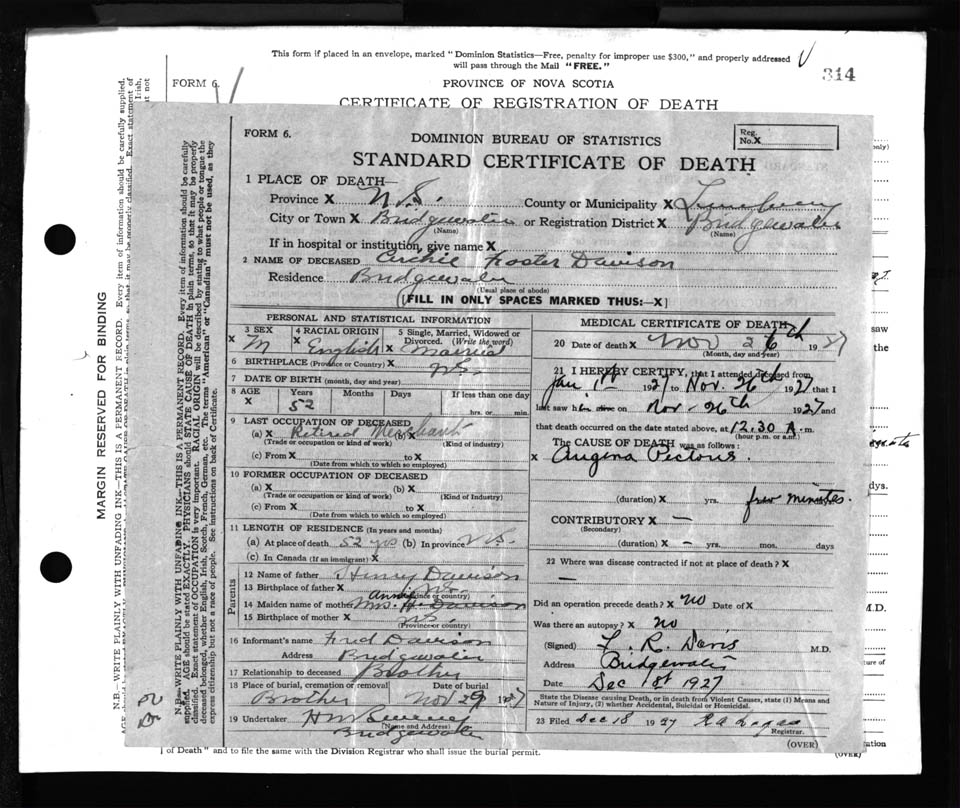 This form if placed in an envelope, marked "Dominion Statistics—Free, penalty for improper use $300," and properly addressed
will pass through the Mail "FREE."
314
FORM 6.
PROVINCE OF NOVA SCOTIA
CERTIFICATE OF REGISTRATION OF DEATH
FORM 6.
DOMINION BUREAU OF STATISTICS
Reg. No. X
STANDARD CERTIFICATE OF DEATH
1 PLACE OF DEATH—
Province X N.S. County or Municipality X Lunenburg
City or Town X Bridgewater or Registration District X Bridgewater
(Name) (Name)
If in hospital or institution, give name X
2 NAME OF DECEASED X Archie Foster Davison
Residence Bridgewater
(Usual place of abode)
(FILL IN ONLY SPACES MARKED THUS:—X)
PERSONAL AND STATISTICAL INFORMATION
3 SEX X M
4 RACIAL ORIGIN X English
5 Single, Married, Widowed or Divorced. (Write the word) X Married
6 BIRTHPLACE (Province or Country) X N.S.
7 DATE OF BIRTH (month, day and year)
8 AGE X Years 52 Months Days If less than one day
hrs. or min.
9 LAST OCCUPATION OF DECEASED
(a) X Retired Merchant (b) X
(Trade or occupation or kind of work) (Kind of industry)
(c) From X to X
(Date from which to which so employed)
10 FORMER OCCUPATION OF DECEASED
(a) X (b) X
(Trade or occupation or kind of work) (Kind of Industry)
(c) From X to X
(Date from which to which so employed)
11 LENGTH OF RESIDENCE (In years and months)
(a) At place of death 52 yrs (b) In province N.S.
(c) In Canada (If an immigrant) X
Parents
12 Name of father Henry Davison
13 Birthplace of father X N.S.
(Province or country)
14 Maiden name of mother Annie Mrs. H. Davison
15 Birthplace of mother X N.S.
(Province or country)
16 Informant's name Fred Davison
Address Bridgewater
17 Relationship to deceased Brother
18 Place of burial, cremation or removal Date of burial
Brother Nov 29 1927
19 Undertaker
(Name and Address)
Bridgewater
MEDICAL CERTIFICATE OF DEATH
20 Date of death X Nov 26th 1927
(Month, day and year)
21 I HEREBY CERTIFY, that I attended deceased from
Jan 1st 1927 to Nov. 26th 1927 that I
last saw him alive on Nov-26th 1927 and
that death occurred on the date stated above, at 12.30 A.m.
(hour p.m. or a.m.)
The CAUSE OF DEATH was as follows:
X Angina Pectoris.
(duration) X yrs. few minutes.
CONTRIBUTORY X —
(Secondary)
(duration) X — yrs. mos. days
22 Where was disease contracted if not at place of death? X
—
Did an operation precede death? X no Date of X
Was there an autopsy? X no
(Signed) L. R. Davis M.D.
Address Bridgewater
Date Dec 18t 1927
State the Disease causing Death, or in death from Violent Causes, state (1) Means and Nature of Injury, (2) whether Accidental, Suicidal or Homicidal.
23 Filed Dec 18 1927
Registrar.
(OVER)
(OVER)
of Death" and to file the same with the Division Registrar who shall issue the burial permit.
MARGIN RESERVED FOR BINDING
N.B.—WRITE PLAINLY WITH UNFADING INK—THIS IS A PERMANENT RECORD. Every item of information should be carefully supplied. AGE should be stated EXACTLY. PHYSICIANS should STATE CAUSE OF DEATH in plain terms, so that it may be properly classified. Exact statement of OCCUPATION is very important. RACIAL ORIGIN will be described by stating to what people or tongue the deceased belonged, whether English, Irish, Scotch, French, German, etc. The terms "American" or "Canadian" must not be used, as they express citizenship but not a race of people. See instructions on back of Certificate.